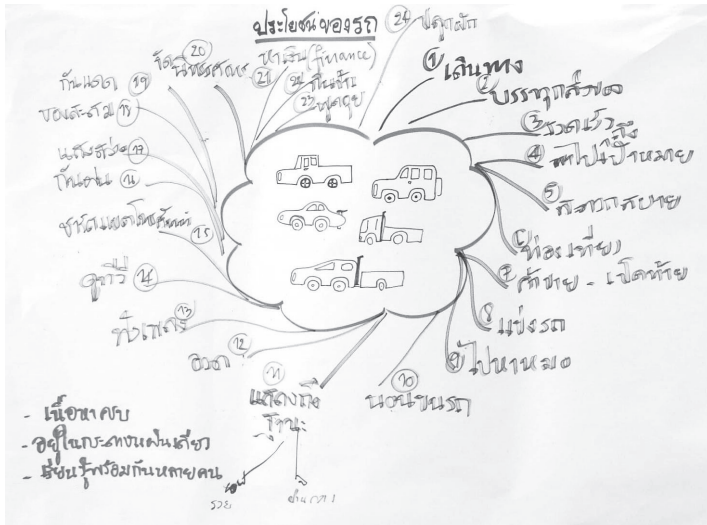 ประโยชน์ของรถ
① เดินทาง
② บรรทุกสิ่งของ
③ รวดเร็ว
④ ไปถึงเป้าหมาย
⑤ สะดวกสบาย
⑥ ท่องเที่ยว
⑦ ค้าขาย - เปิดท้าย
8 แข่งรถ
⑨ ไปหาหมอ
⑩ นอนบนรถ
⑪ แสดงถึง
ฐานะ
รวย
⑫ อวด
⑬ ฟังเพลง
⑭ ดูทีวี
⑮ ชาร์ตแบตโทรศัพท์
⑯ กันฝน
⑰ แสงสว่าง
⑱ ของสะสม
⑲ กันแดด
⑳ จัดนิทรรศการ
㉑ หาเงิน (finance)
㉒ กินข้าว
㉓ พูดคุย
㉔ ปลูกผัก
- เนื้อหาครบ
- อยู่ในกระดาษแผ่นเดียว
- เรียนรู้พร้อมกันหลายคน